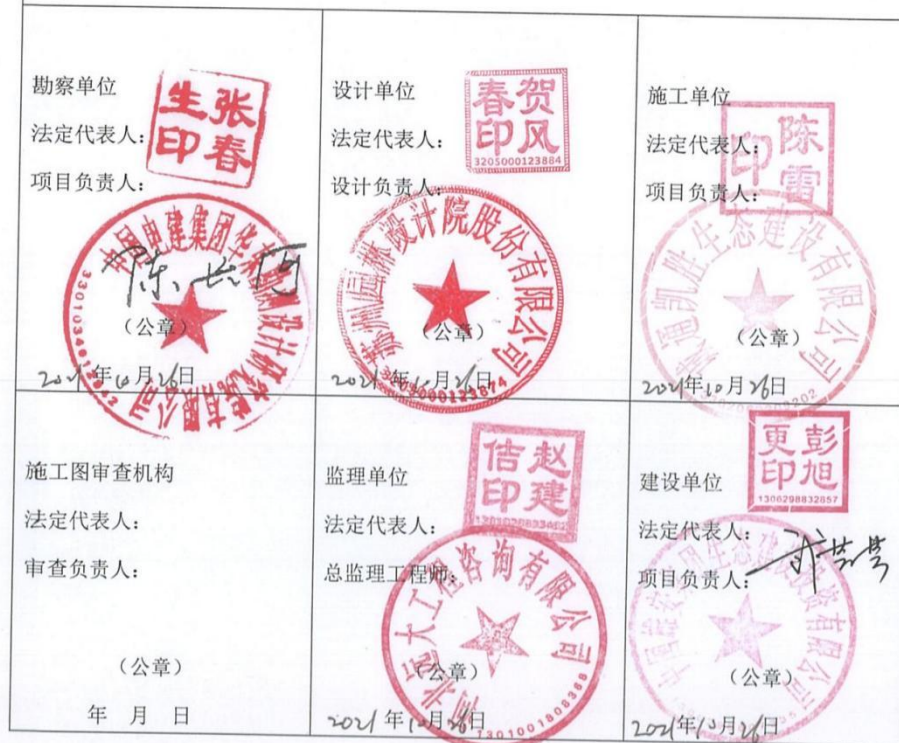 勘察单位
张春
生印
法定代表人：
项目负责人：
中国电建集团华东勘测设计研究院有限公司
陈长河
（公章）
2021年10月26日
设计单位
贺风
春印
3205000123884
法定代表人：
设计负责人：
苏州园林设计院股份有限公司
（公章）
3205000123874
2021年10月26日
施工单位
陈雷
印
法定代表人：
项目负责人：
南通凯胜生态建设有限公司
（公章）
2021年10月26日
施工图审查机构
法定代表人：
审查负责人：
（公章）
年 月 日
监理单位
赵建
佶印
法定代表人：
总监理工程师：
河北远大工程咨询有限公司
（公章）
1301001808368
2021年10月26日
建设单位
彭旭
更印
1306298832857
法定代表人：
项目负责人：
（公章）
2021年10月26日